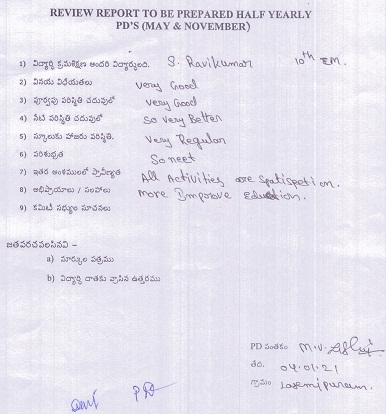 REVIEW REPORT TO BE PREPARED HALF YEARLY
PD'S (MAY & NOVEMBER)
1) విద్యార్థి క్రమశిక్షణ అందరి విద్యార్థులది. S. Ravikumar 10th EM.
2) వినయ విధేయతలు very Good
3) పూర్వపు పరిస్థితి చదువులో very Good
4) నేటి పరిస్థితి చదువులో So very Better
5) స్కూలుకు హాజరు పరిస్థితి. very Regular
6) పరిశుభ్రత So neet
7) ఇతర అంశములలో ప్రావీణ్యత All Activities are Spatispetion.
8) అభిప్రాయాలు / సలహాలు more Improve
9) కమిటీ సభ్యుల సూచనలు
జతపరచవలసినవి -
a) మార్కుల పత్రము
b) విద్యార్థి దాతకు వ్రాసిన ఉత్తరము
PD సంతకం M.V.
తేది. 04.01.21
గ్రామం Laxmipuram.